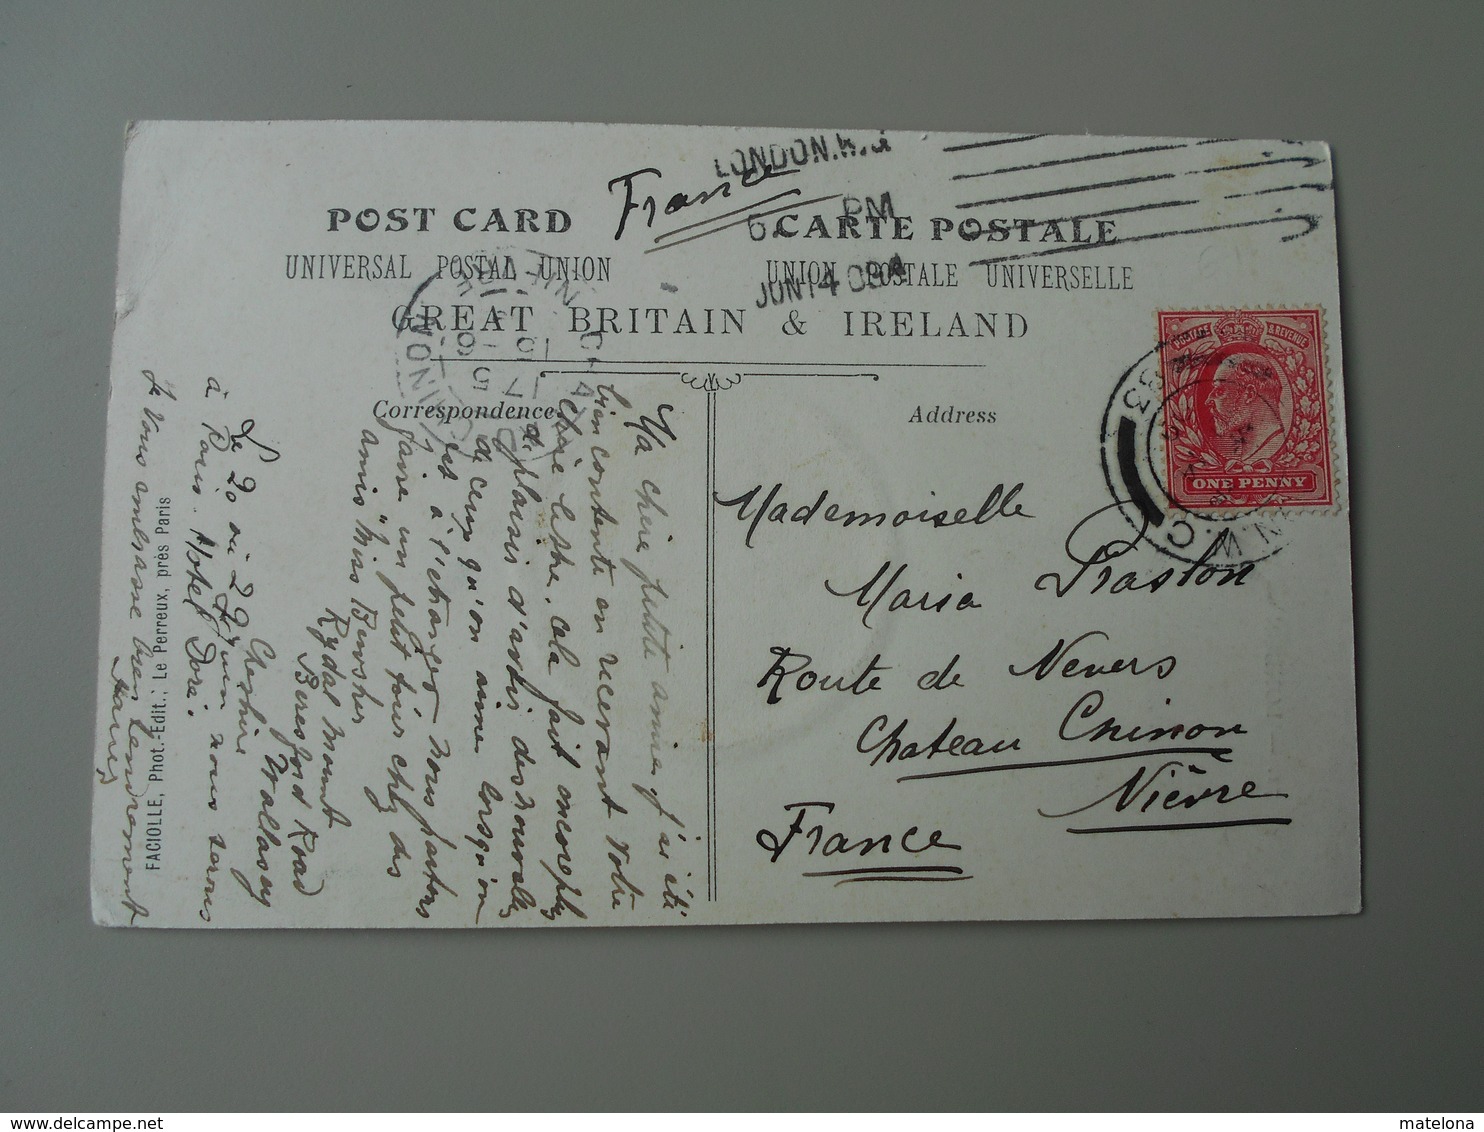 LONDON.W.C
6. PM
JUN 14 09
France
POST CARD
CARTE POSTALE
UNIVERSAL POSTAL UNION
UNION POSTALE UNIVERSELLE
GREAT BRITAIN & IRELAND
Correspondence
Address
ONE PENNY
W.C
Mademoiselle
Maria
Route de Nevers
Chateau Chinon
Nièvre
France
Ma chère petite amie, j'ai été
bien contente en recevant votre
chère lettre. cela fait
plaisir d'avoir des nouvelles
de ceux qu'on aime lorsqu'on
est à l'étranger nous partons
faire un petit tour chez des
amis "Miss
Rydal mount
Beresford Road
Wallasey
Cheshire
Le 20 ou 29 Juin nous serons
à Paris. Hotel Doré.
Je vous embrasse bien tendrement
FACIOLLE, Phot.-Edit., Le Perreux, près Paris